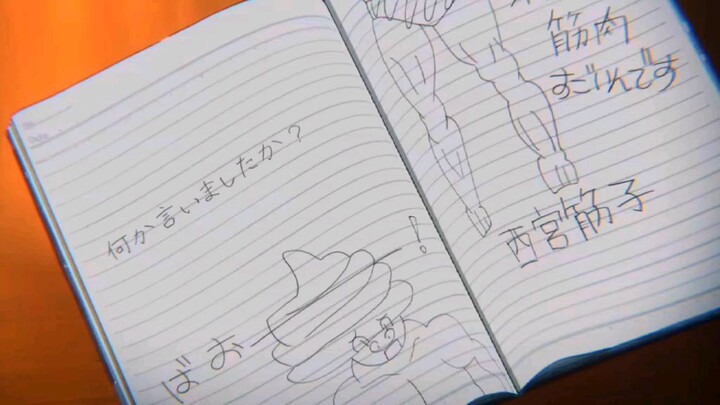 何か言いましたか?
ばおー!
筋肉
すごいんです
西宮筋子